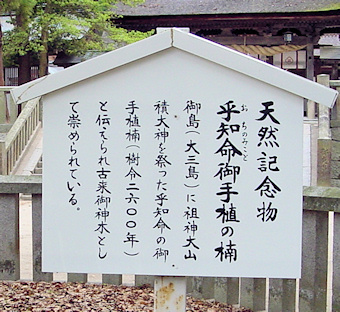 天然記念物
乎知命御手植の楠
おちのみこと
御島（大三島）に祖神大山
積大神を祭った乎知命の御
手植楠（樹令二六００年）
と伝えられ古来御神木とし
て崇められている。